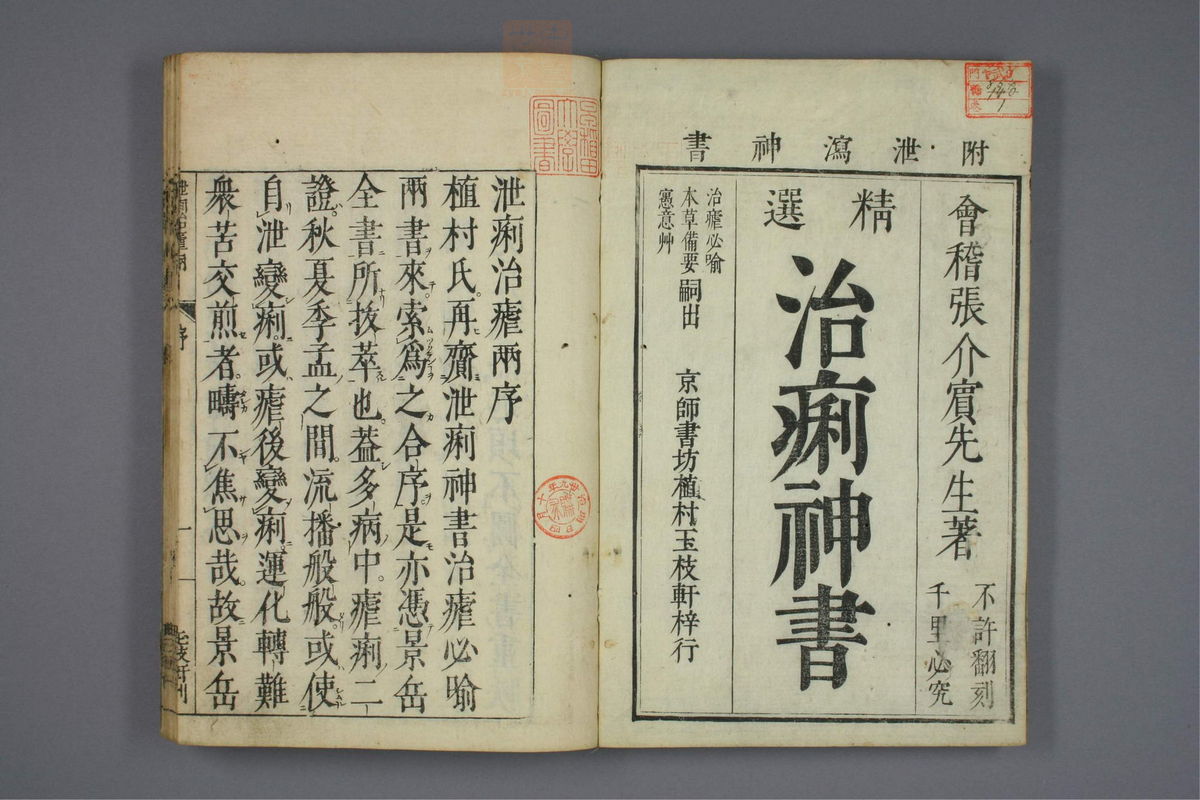 附泄瀉神書
會稽張介賓先生著
不許翻刻
千里必究
精選
治痢神書
治瘧必喻
本草備要
寓意艸
嗣出
京師書坊植村玉枝軒梓行
泄痢治瘧兩序
植村氏再齎泄痢神書治瘧必喻
兩書來索爲之合序是亦憑景岳
全書所拔萃也蓋多病中瘧痢二
證秋夏季孟之間流播般般或使
自泄變痢或瘧後變痢運化轉難
衆苦交煎者疇不焦思哉故景岳
序
一
玉枝軒刊